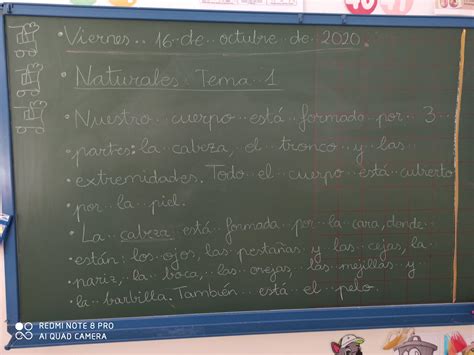 Viernes 16 de octubre de 2020.
Naturales Tema 1
Nuestro cuerpo está formado por 3
partes: la cabeza, el tronco y las
extremidades. Todo el cuerpo está cubierto
por la piel.
La cabeza está formada por la cara, donde
están: los ojos, las pestañas y las cejas, la
nariz, la boca, las orejas, las mejillas y
la barbilla. También está el pelo.
REDMI NOTE 8 PRO
AI QUAD CAMERA